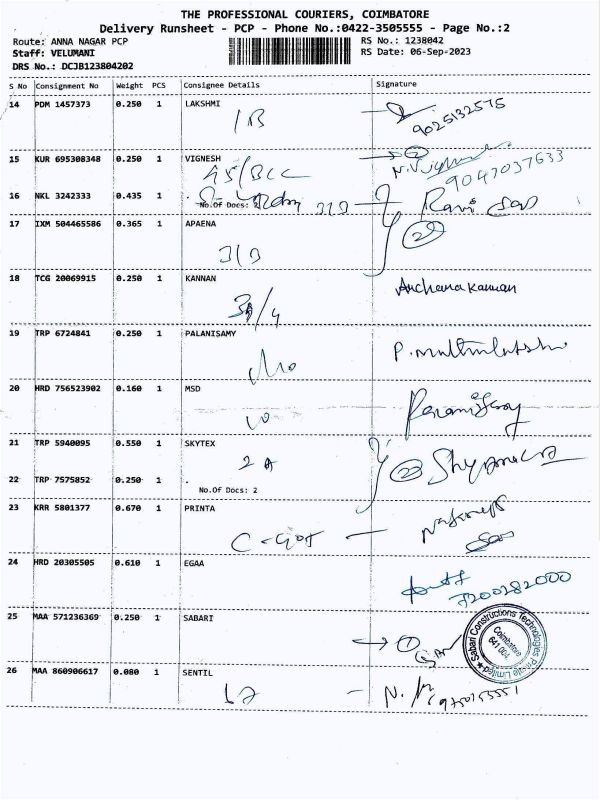 THE PROFESSIONAL COURIERS, COIMBATORE
Delivery Runsheet - PCP - Phone No.:0422-3505555 - Page No.:2
Route: ANNA NAGAR PCP RS No.: 1238042
Staff: VELUMANI RS Date: 06-Sep-2023
DRS No.: DCJB123804202
S No Consignment No Weight PCS Consignee Details Signature
14 PDM 1457373 0.250 1 LAKSHMI
1B 9025132575
15 KUR 695308348 0.250 1 VIGNESH
9047037633
16 NKL 3242333 0.435 1
No.Of Docs: 2 31B Ravi
17 IXM 504465586 0.365 1 APAENA
31B
18 TCG 20069915 0.250 1 KANNAN
Archana Kannan
19 TRP 6724841 0.250 1 PALANISAMY
20 HRD 756523902 0.160 1 MSD
21 TRP 5940095 0.550 1 SKYTEX
2A
22 TRP 7575852 0.250 1 .
No.Of Docs: 2
23 KRR 5801377 0.670 1 PRINTA
24 HRD 20305505 0.610 1 EGAA
7200282000
25 MAA 571236369 0.250 1 SABARI
Sabari Constructions Technologies Private Limited
Coimbatore
641 004
26 MAA 860906617 0.080 1 SENTIL